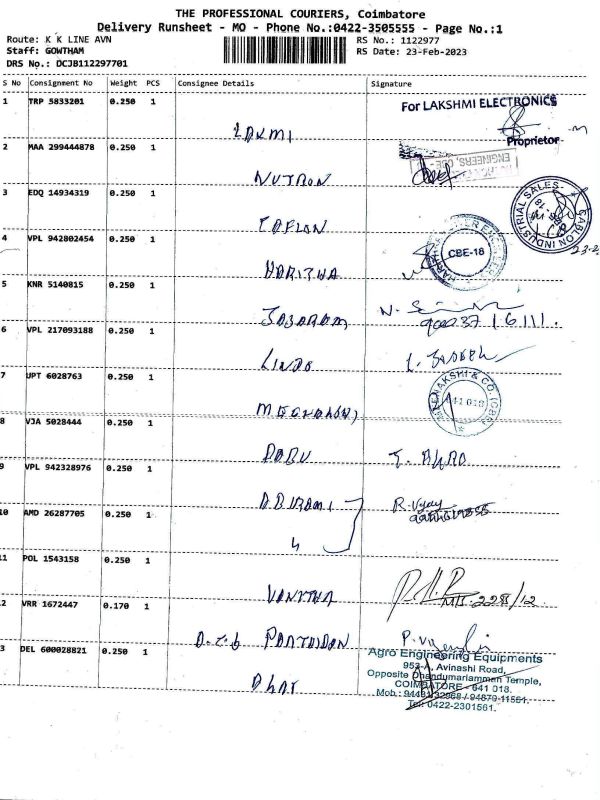 THE PROFESSIONAL COURIERS, Coimbatore
Delivery Runsheet - MO - Phone No.:0422-3505555 - Page No.:1
Route: K K LINE AVN
RS No.: 1122977
Staff: GOWTHAM
RS Date: 23-Feb-2023
DRS No.: DCJB112297701
S No Consignment No Weight PCS Consignee Details Signature
1 TRP 5833201 0.250 1
For LAKSHMI ELECTRONICS
LAXMI
Proprietor
2 MAA 299444878 0.250 1
ENGINEERS, CBE
NUTRON
3 EDQ 14934319 0.250 1
SABLON INDUSTRIAL SALES
TAFLON
4 VPL 942802454 0.250 1
CBE-18
HARITHA
23-2
5 KNR 5140815 0.250 1
JAJARAM
6 VPL 217093188 0.250 1
LINDO
7 UPT 6028763 0.250 1
MEENAKSHI & CO. (CBE)
641 018
8 VJA 5028444 0.250 1
BABU
9 VPL 942328976 0.250 1
ABIRAMI
R. Vijay
10 AMD 26287705 0.250 1
11 POL 1543158 0.250 1
VANITHA
12 VRR 1672447 0.170 1
13 DEL 600028821 0.250 1
Agro Engineering Equipments
953-A, Avinashi Road,
Opposite Dhandumariamman Temple,
COIMBATORE - 641 018.
Tel: 0422-2301561.